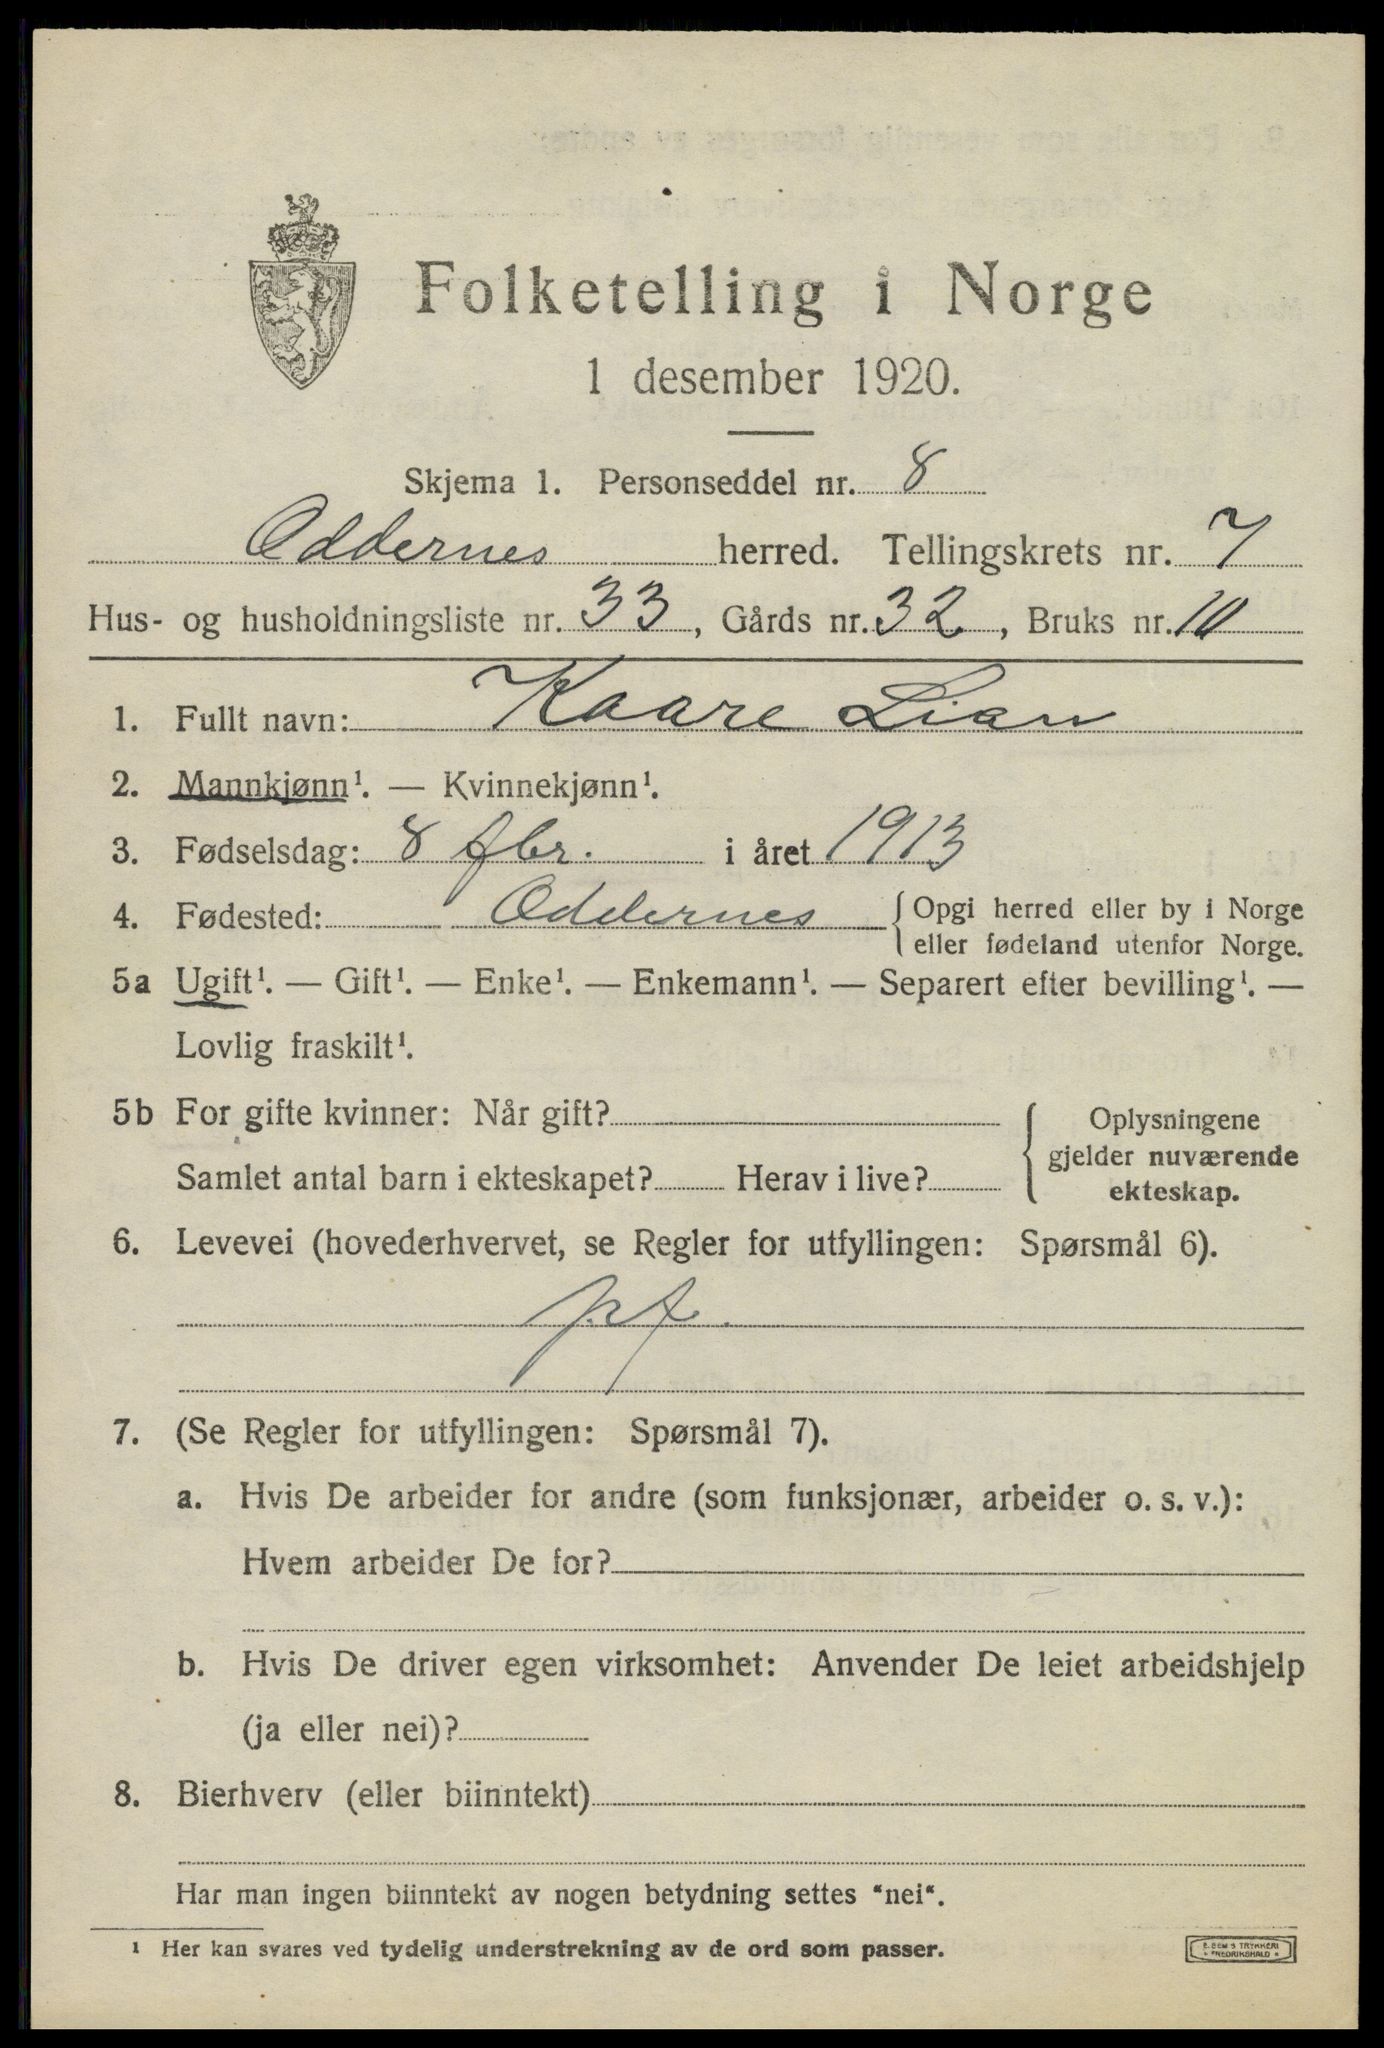 Folketelling i Norge
1 desember 1920.
Skjema 1. Personseddel nr. 8
Oddernes herred. Tellingskrets nr. 7
Hus- og husholdningsliste nr. 33, Gårds nr. 32, Bruks nr. 10
1. Fullt navn: Kaare Lian
2. Mannkjønn¹. — Kvinnekjønn¹.
3. Fødselsdag: 8 fbr. i året 1913
4. Fødested: Oddernes { Opgi herred eller by i Norge
eller fødeland utenfor Norge.
5a Ugift¹. — Gift¹. — Enke¹. — Enkemann¹. — Separert efter bevilling¹. —
Lovlig fraskilt¹.
5b For gifte kvinner: Når gift?
Samlet antal barn i ekteskapet? Herav i live?
Oplysningene
gjelder nuværende
ekteskap.
6. Levevei (hovederhvervet, se Regler for utfyllingen: Spørsmål 6).
7. (Se Regler for utfyllingen: Spørsmål 7).
a. Hvis De arbeider for andre (som funksjonær, arbeider o. s. v.):
Hvem arbeider De for?
b. Hvis De driver egen virksomhet: Anvender De leiet arbeidshjelp
(ja eller nei)?
8. Bierhverv (eller biinntekt)
Har man ingen biinntekt av nogen betydning settes "nei".
¹ Her kan svares ved tydelig understrekning av de ord som passer.
E. SEM'S TRYKKERI
FREDRIKSHALD